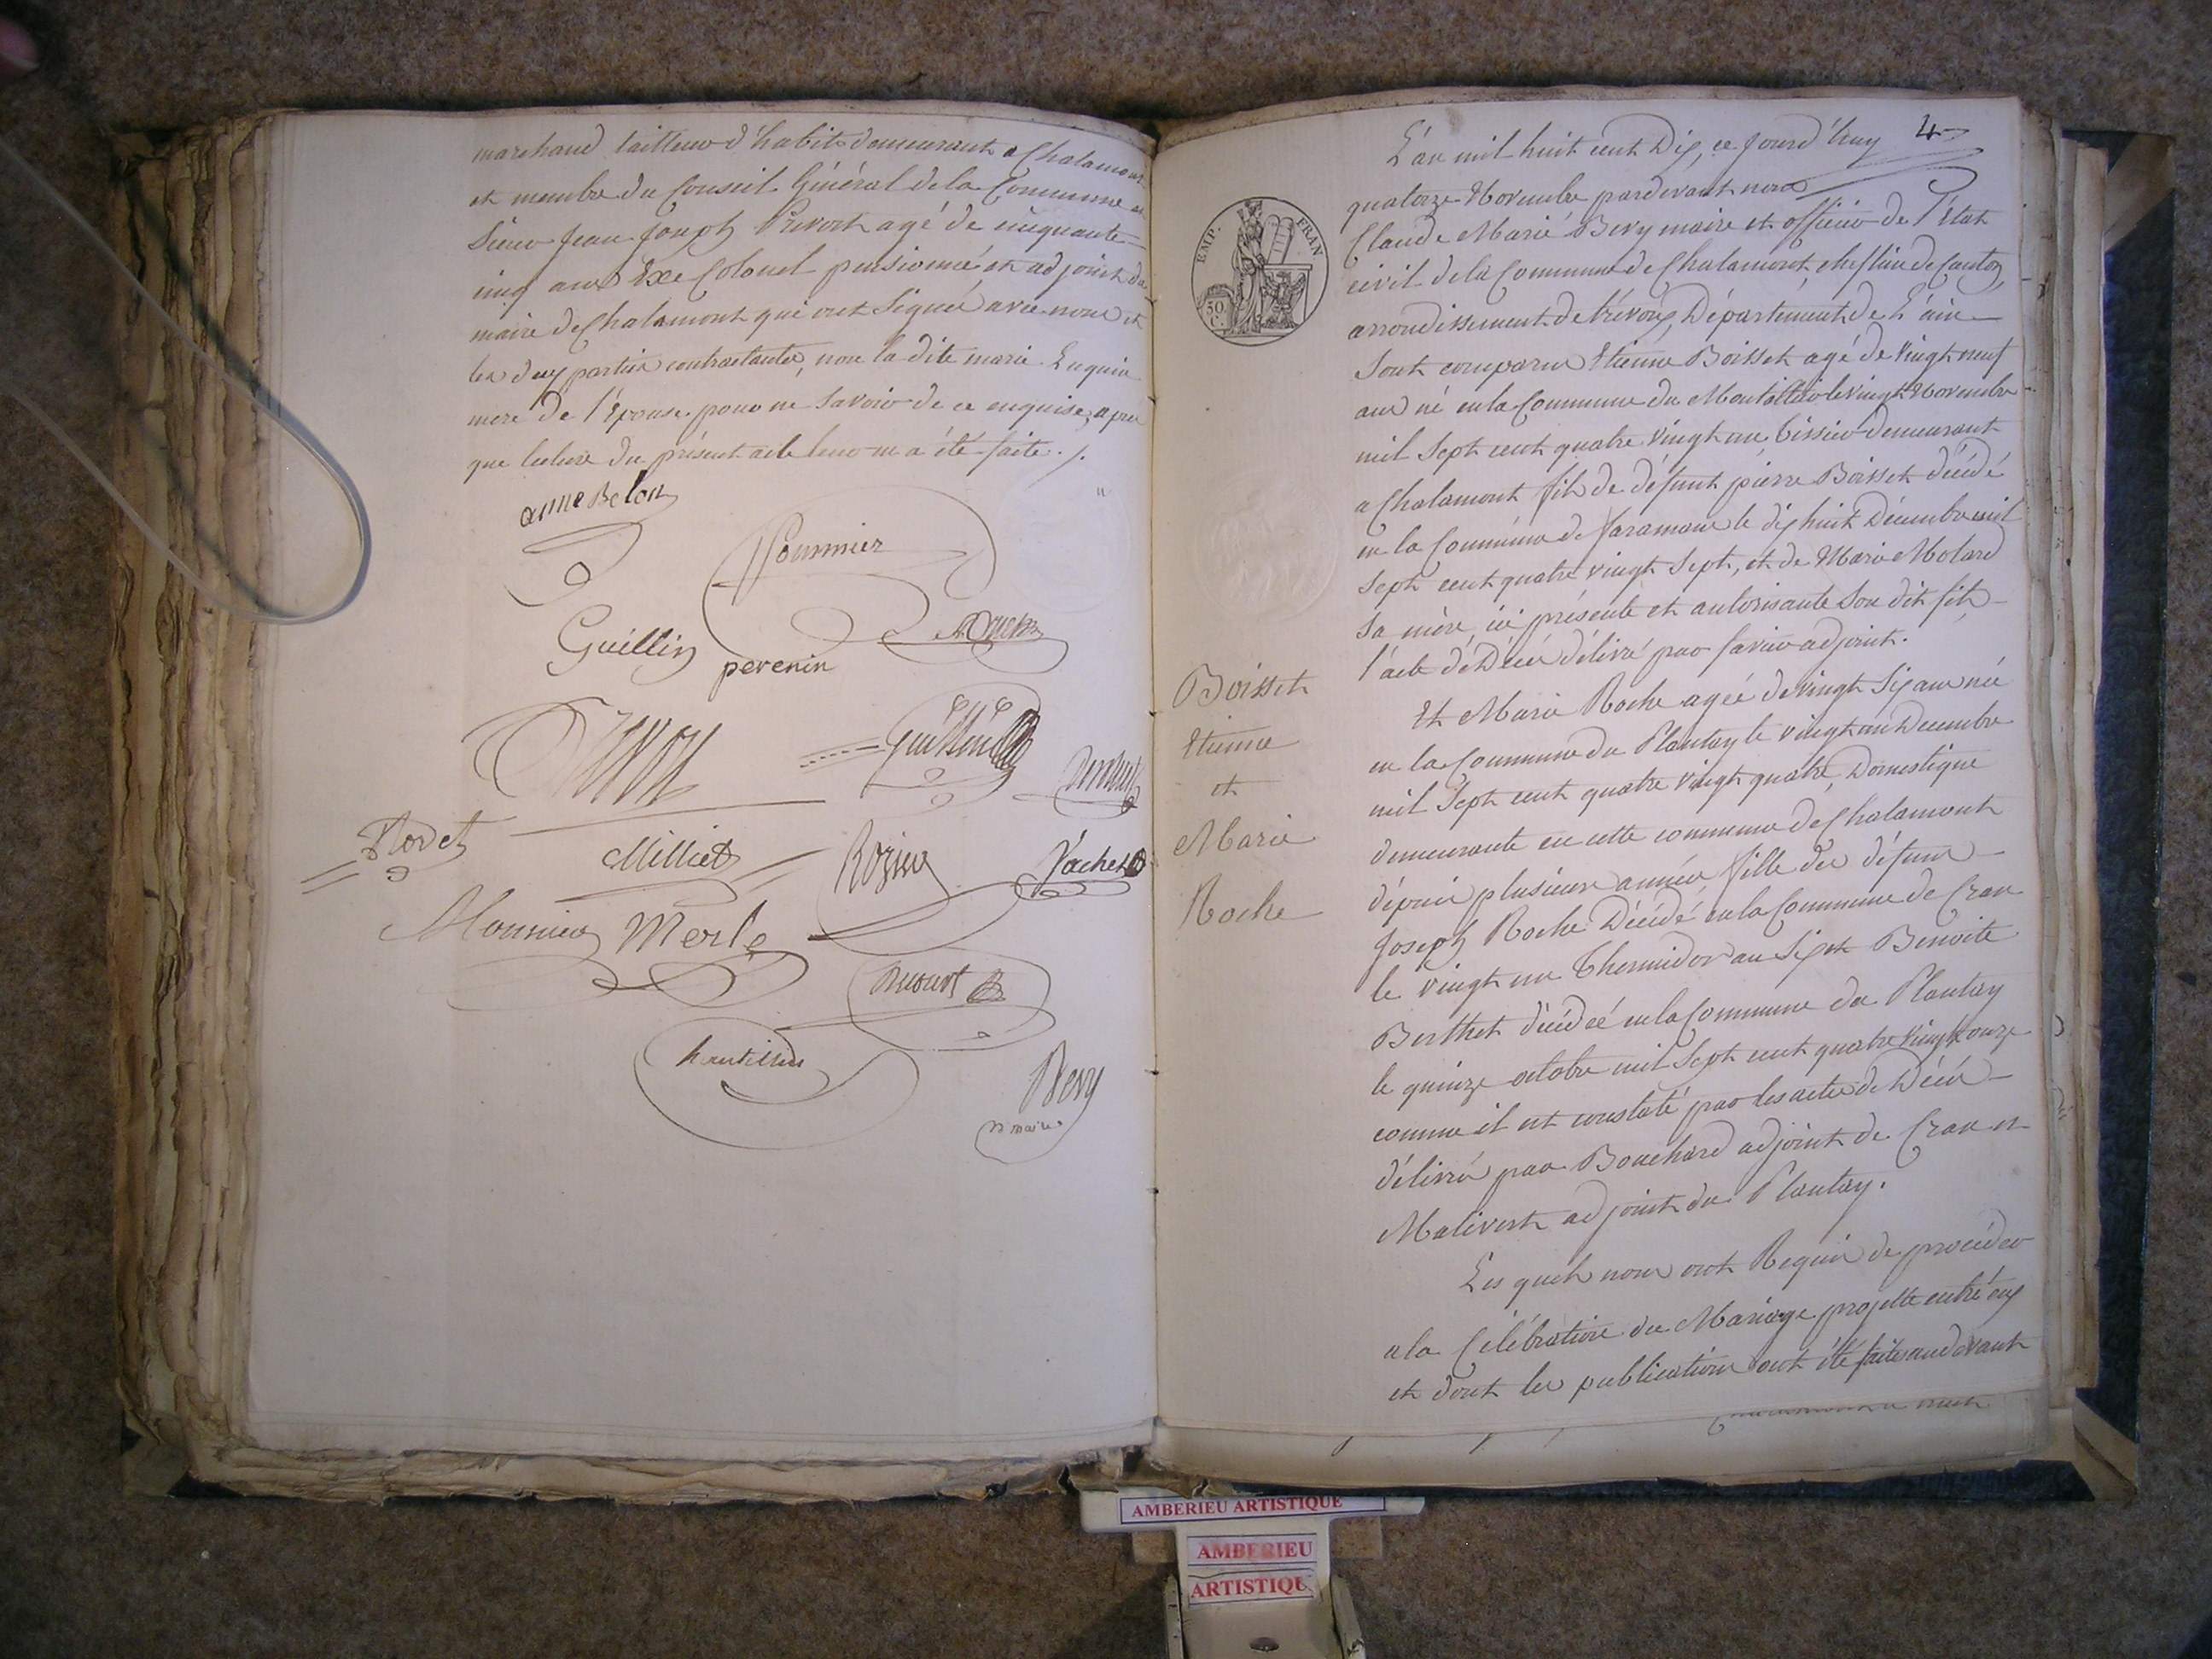 marchand tailleur d'habits demeurant a Chalamont
et membre du Conseil Général de la Commune et
Sieur Jean Joseph Prévost agé de cinquante
cinq ans Exe Colonel pensionné et adjoint du
maire de Chalamont qui ont Signé avec nous et
les deux parties contractantes, non la dite marie
mere de l'Epouse pour ne Savoir de ce enquise, apres
que lecture du présent acte leur en a été faite ./.
anne Belon
Pommier
Guillin
perenin
Guillin
Rodet
Milliet
Rozier
Vacher
Monnier
Merle
Ducourt
Bevy
maire
4
L'an mil huit cent Dix, ce jourd'huy
quatorze Novembre pardevant nous
Claude Marie Bevy maire et officier de l'état
civil de la Commune de Chalamont, chef lieu de Canton,
arrondissement de trévoux, Département de L'ain
Sont comparus Etienne Boisset agé de Vingt neuf
ans né en la Commune du Montellier le vingt Novembre
mil Sept cent quatre vingt un demeurant
a Chalamont fils de défunt pierre Boisset décédé
en la Commune de faramans le dix huit Décembre mil
Sept cent quatre vingt Sept, et de Marie Molard
Sa mère, ici présente et autorisante Son dit fils
l'acte de Décès délivré par adjoint.
Et Marie Roche agée de vingt Six ans née
en la Commune du Plantay le vingt un Decembre
mil Sept cent quatre vingt quatre, Domestique
demeurante en cette commune de Chalamont
dépuis plusieurs années fille des défuns
Joseph Roche Décédé en la Commune de Cran
le vingt un Thermidor an Six et Benoite
Berthet décédée en la Commune du Plantay
le quinze octobre mil Sept cent quatre vingt onze
comme il est constaté par les actes de Décès
délivré par Bouchard adjoint de Cran et
Malivert adjoint du Plantay.
Les quels nous ont Requis de procéder
a la Célébration du Mariage projetté entré eux
et dont les publications ont été faites audevant
EMP. FRAN
50
C.
Boisset
Etienne
et
Marie
Roche
AMBERIEU ARTISTIQUE
AMBERIEU
ARTISTIQU